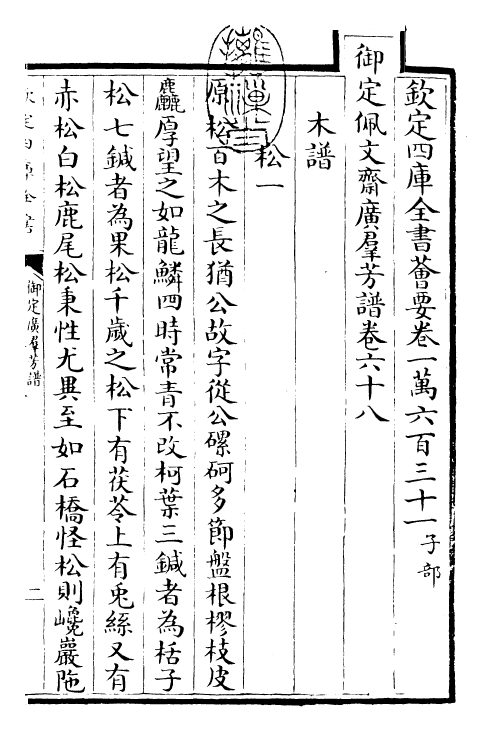 欽定四庫全書薈要卷一萬六百三十一子部
御定佩文齋廣羣芳譜卷六十八
木譜
松一
原松百木之長猶公故字從公磥砢多節盤根樛枝皮
麤厚望之如龍鱗四時常青不改柯葉三鍼者為栝子
松七鍼者為果松千歲之松下有茯苓上有兎絲又有
赤松白松鹿尾松秉性尤異至如石橋怪松則巉巖陁
御定廣羣芳譜
二